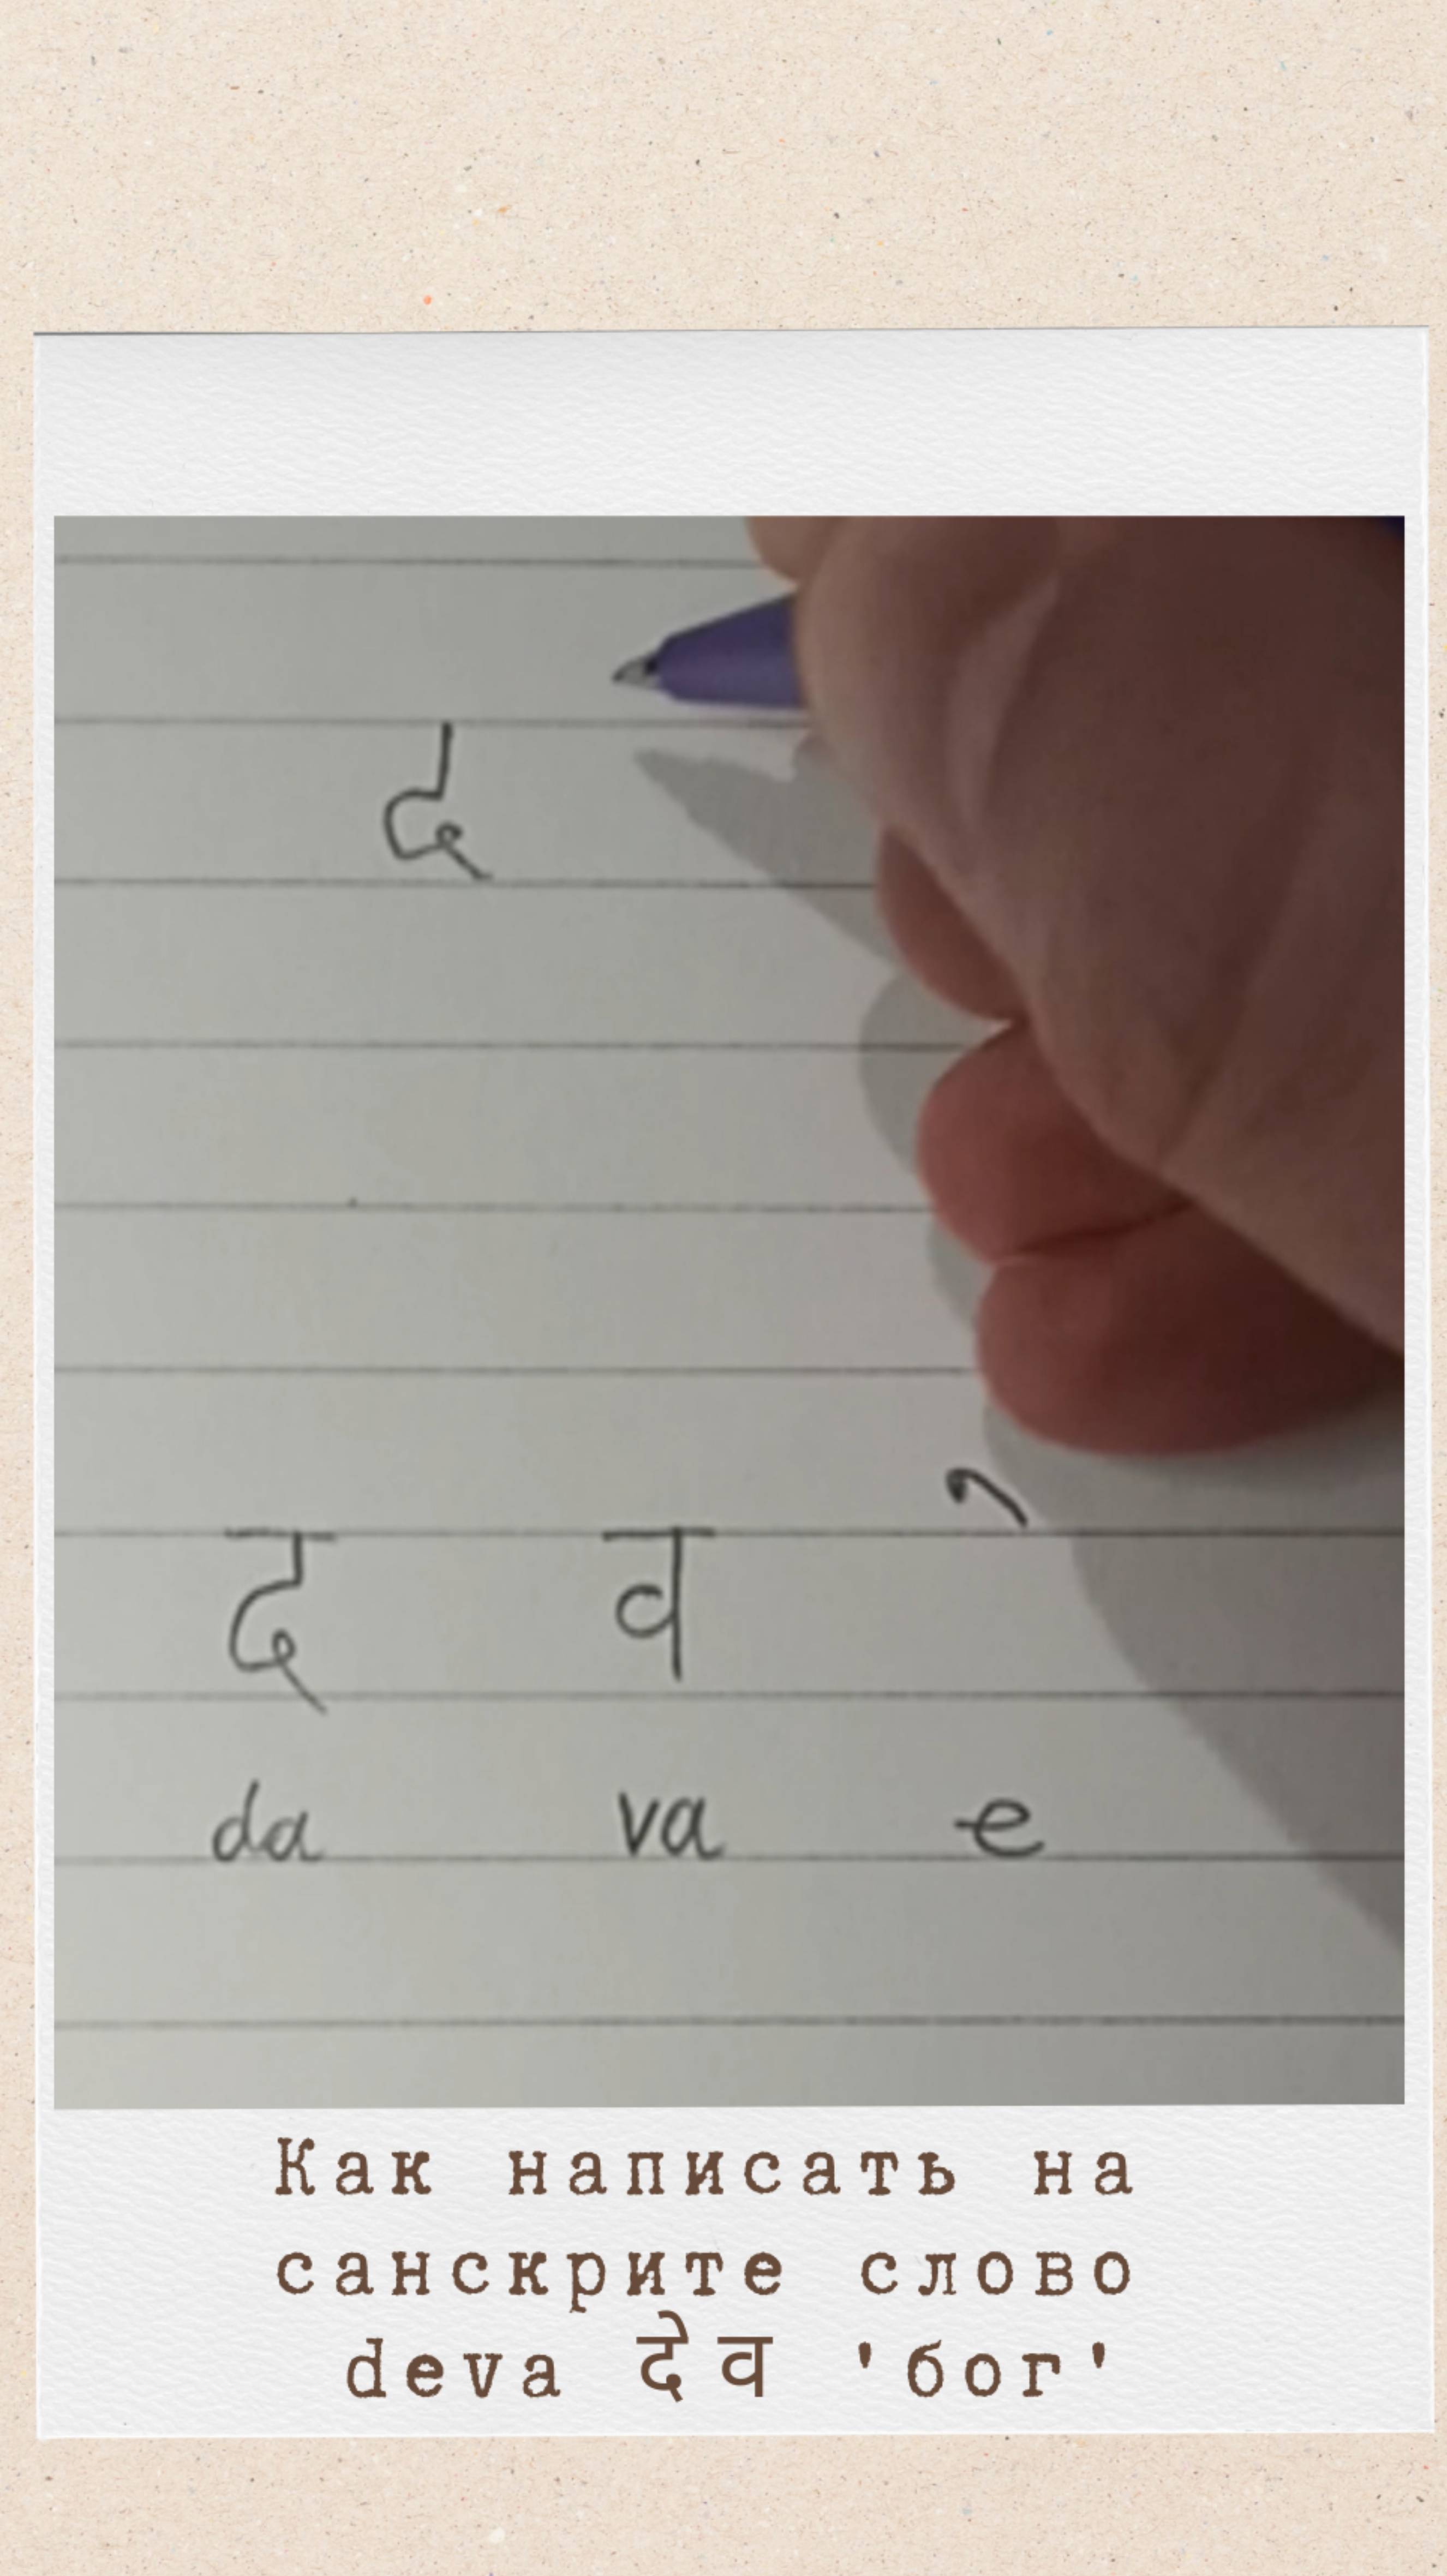 द
द व े
da va e
Как написать на
санскрите слово
deva देव 'бог'